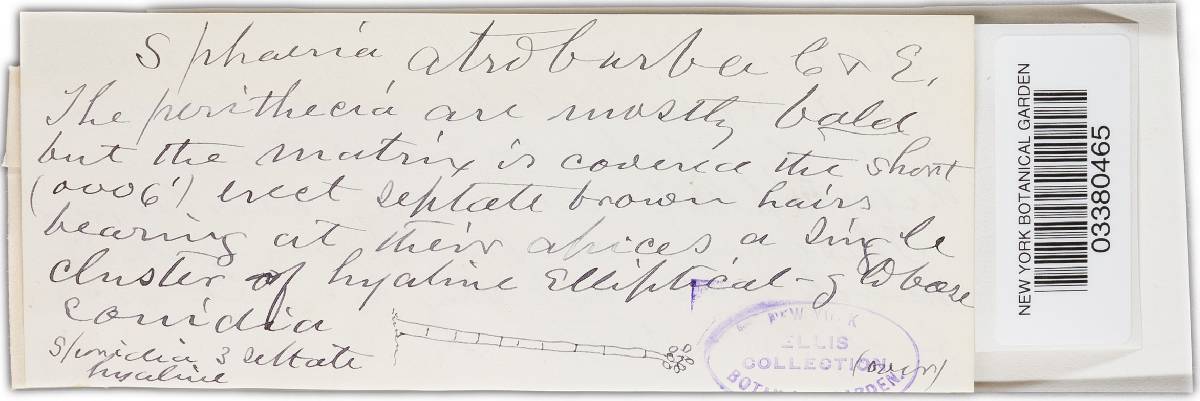 Sphaeria atrobarba C & E.
The perithecia are mostly bald
but the matrix is covered the short
(0006') erect septate brown hairs
bearing at their apices a single
cluster of hyaline elliptical-globose
conidia
Sporidia 3 septate
hyaline
(over)
NEW YORK
ELLIS
COLLECTION
BOTANICAL GARDEN.
NEW YORK BOTANICAL GARDEN
03380465